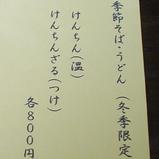 季節そば・うどん(冬季限定
けんちん(温)
けんちんざる(つけ)
各800円